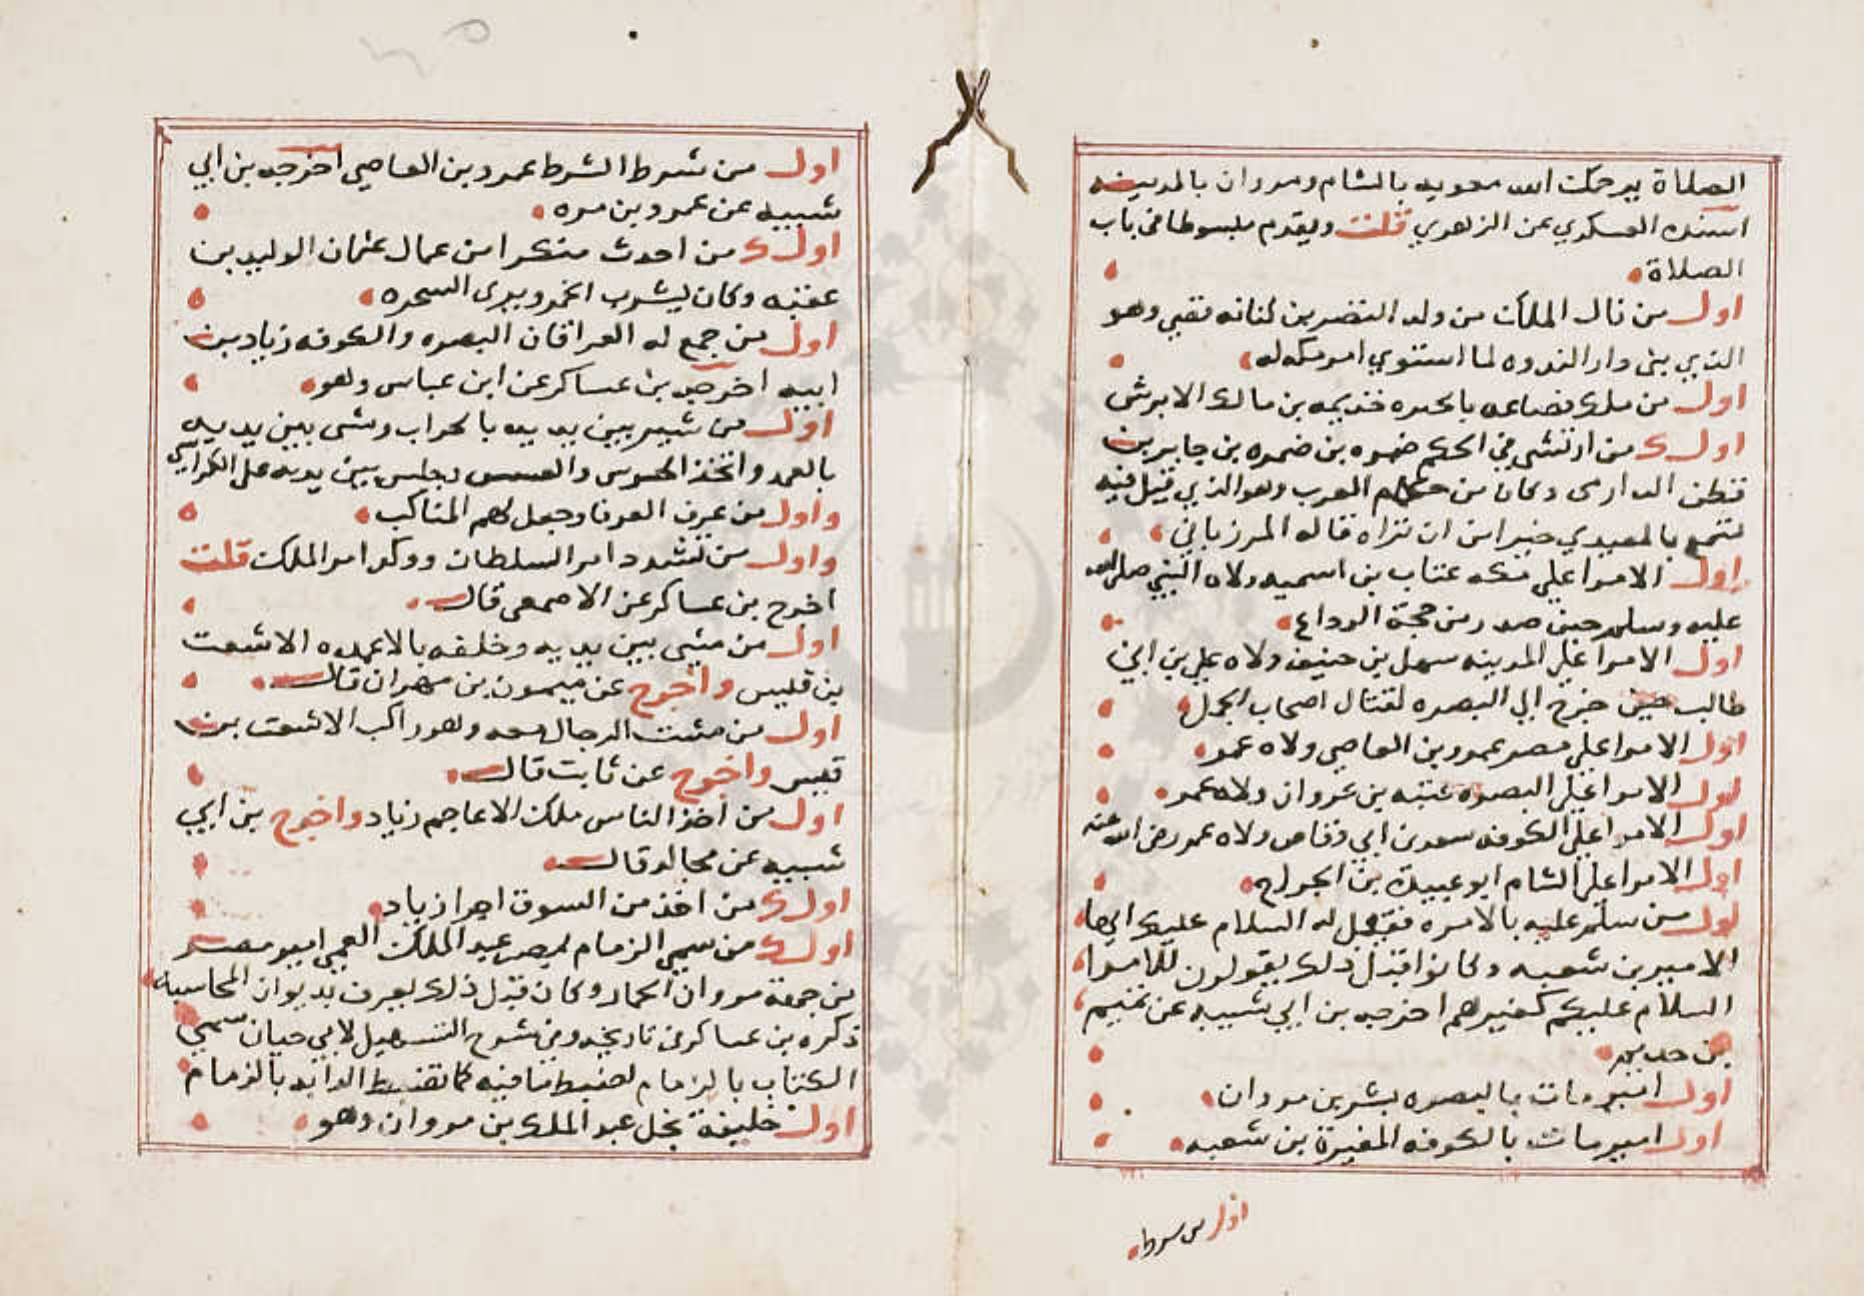 الصلاة يرحمك الله معويه بالشام ومروان بالمدينه
اسنده العسكري عن الزهري قلت ويقدم مبسوطا في باب
الصلاة
اول من نال الملك من ولد النضر بن كنانه قصي وهو
الذي بني دار الندوه لما استوي امر مكه له
اول من ملك قضاعه بالحيره خذيمه بن مالك الابرش
اول من ارتشي في الحكم ضمره بن ضمره بن جابر بن
قطن الدارمى وكان من حكام العرب وهو الذي قيل فيه
تسمع بالمعيدي خير امن ان تراه قاله المرزباني
اول الامرا علي مكه عتاب بن اسميد ولاه النبي صلى الله
عليه وسلم حين صدر من حجة الوداع
اول الامرا علي المدينه سهل بن حنيف ولاه علي بن ابي
طالب حين خرج الي البصره لقتال اصحاب الجمل
اول الامرا علي مصر عمرو بن العاصي ولاه عمر
اول الامرا علي البصره عتبه بن غزوان ولاه عمر
اول الامرا علي الكوفه سعد بن ابي وقاص ولاه عمر رضي الله عنه
اول الامرا علي الشام ابو عبيدة بن الجراح
اول من سلم عليه بالامره فقيل له السلام عليك ايها
الامير بن شعبه وكانوا قبل ذلك يقولون للامرا
السلام عليكم كغيرهم اخرجه بن ابي شيبه عن تميم
بن حديم
اول امير مات بالبصره بشر بن مروان
اول امير مات بالكوفه المغيرة بن شعبه
اول من شرط
اول من شرط الشرط عمرو بن العاصي اخرجه بن ابي
شيبه عن عمرو بن مره
اول من احدث منكرا من عمال عثمان الوليد بن
عقبه وكان يشرب الخمر ويبرى السحره
اول من جمع له العراقان البصره والكوفه زياد بن
ابيه اخرجه بن عساكر عن ابن عباس وهو
اول من سير بين يديه بالحراب ومشى بين يديه
بالعمد واتخذ الحرس والعسس وجلس بين يديه على الكراسي
واول من عرف العرفا وجعل لهم المناكب
واول من شدد امر السلطان ووكد امر الملك قلت
اخرج بن عساكر عن الاصمعى قال
اول من مشي بين يديه وخلفه بالاعمده الاشعت
بن قيس واخرج عن ميمون بن مهران قال
اول من مشت الرجال معه وهو راكب الاشعت بن
قيس واخرج عن ثابت قال
اول من اخذ الناس ملك الاعاجم زياد واخرج بن ابي
شيبه عن مجالد قال
اول من اخذ من السوق اجرا زياد
اول من سمي الزمام لمصر عبد الملك العمي امير مصر
بن جمعة مروان الحمار وكان قبل ذلك يعرف بديوان المحاسبه
ذكره بن عساكر في تاريخه وفي شرح التسهيل لابي حيان سمي
الكتاب بالزمام لضبط ما فيه كما تضبط الدابه بالزمام
اول خليفة بخل عبد الملك بن مروان وهو